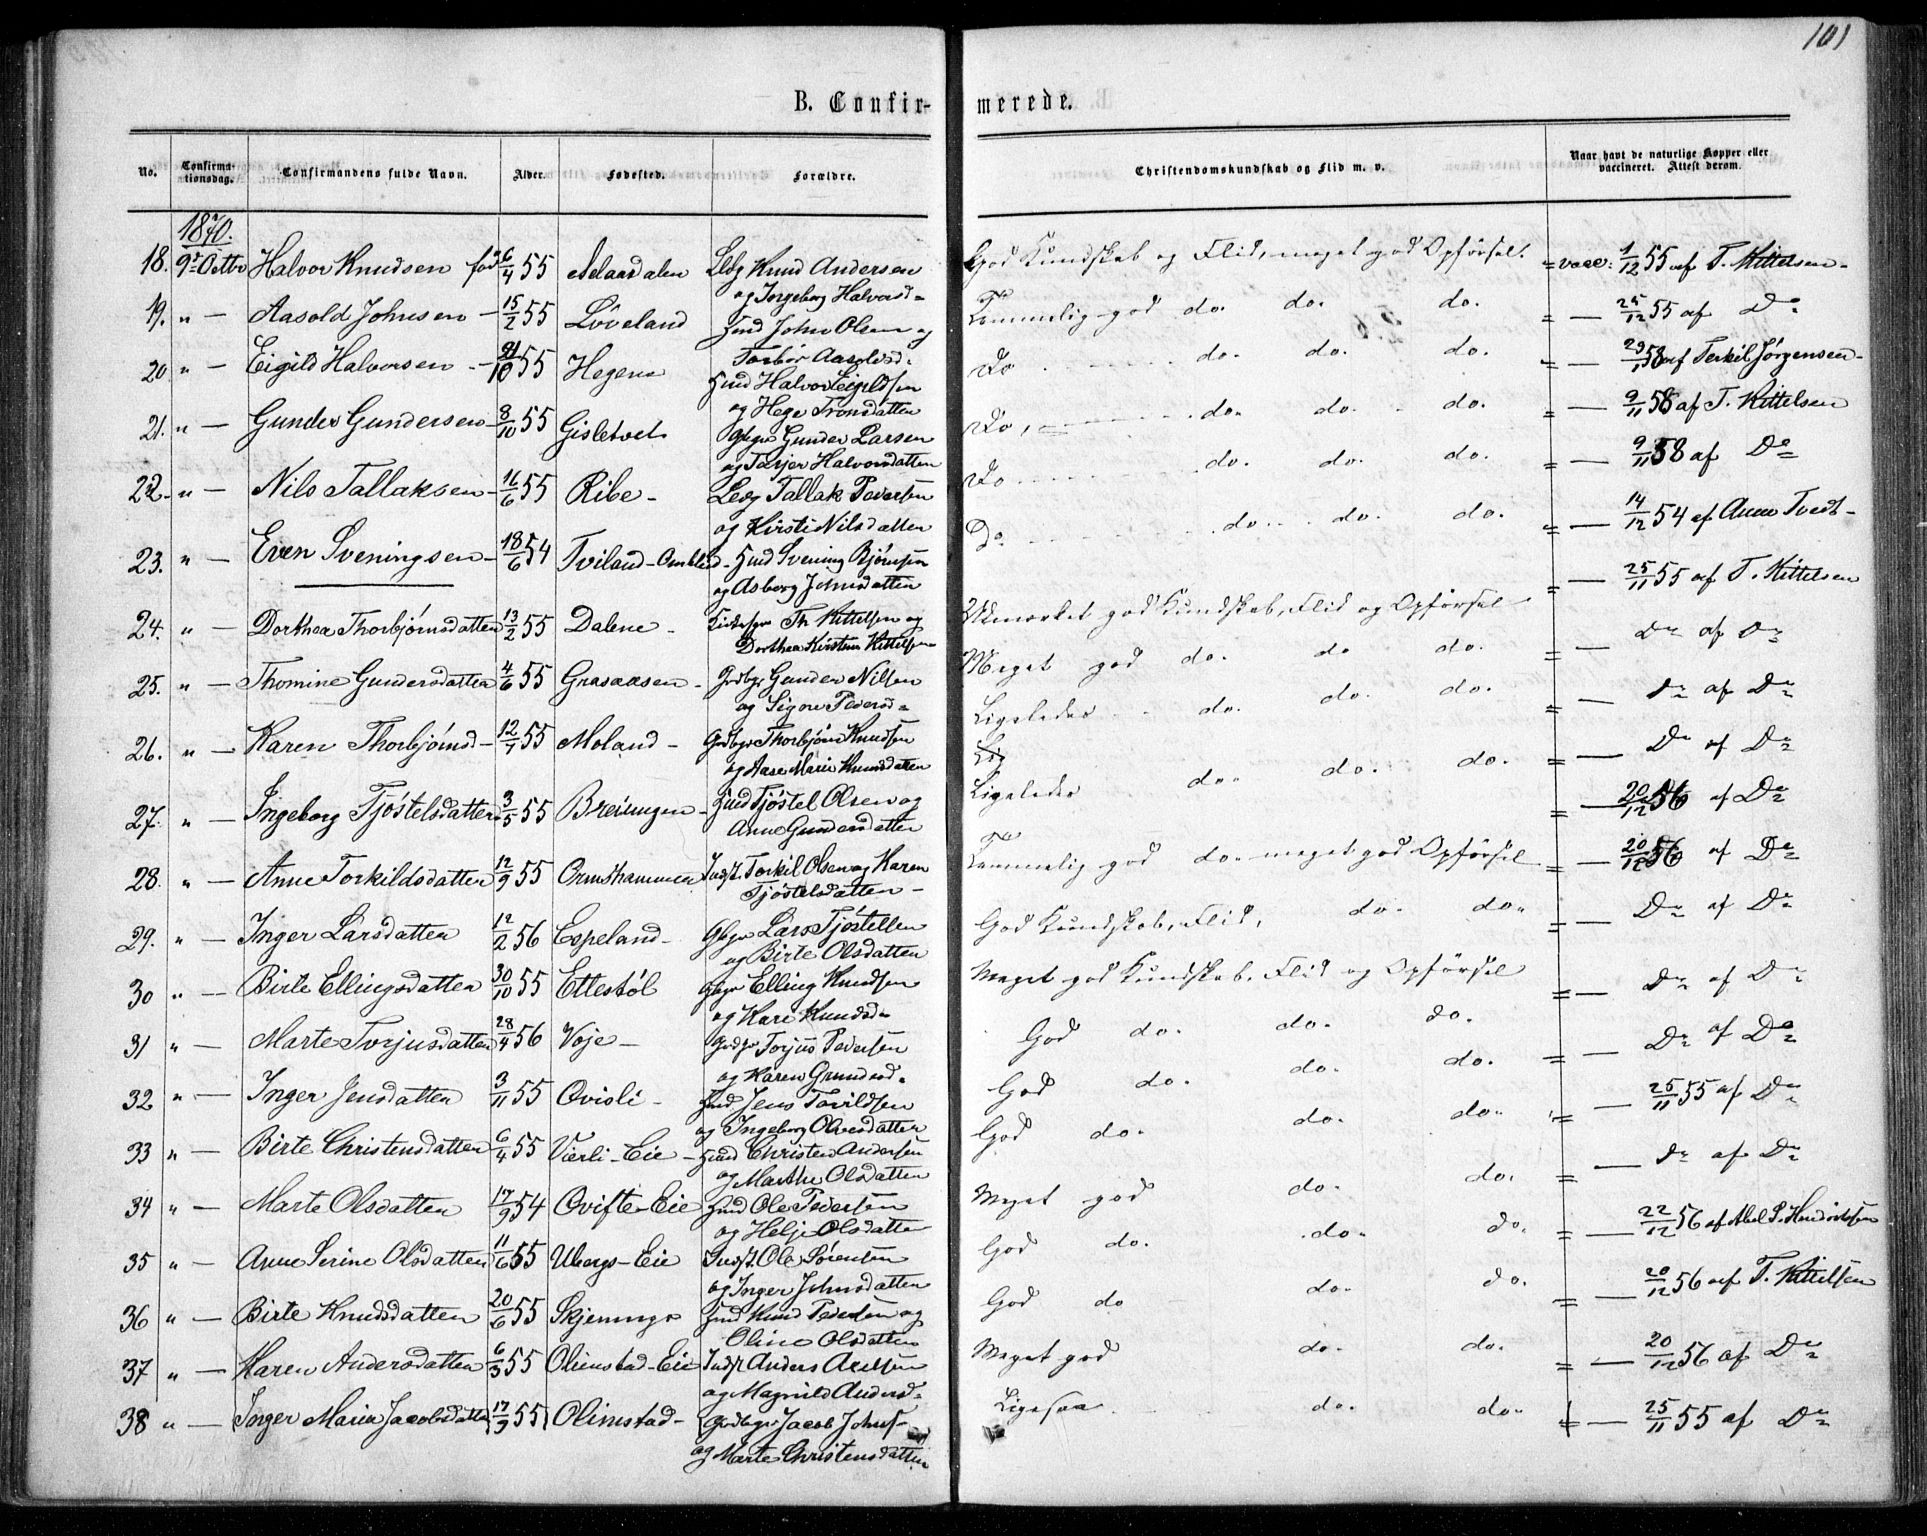 101
B. Confir-
merede.
No.
Confirma-
tionsdag.
Confirmandens fulde Navn.
Alder.
Fødested.
Forældre.
Christendomskundskab og Flid m. v.
Naar havt de naturlige Kopper eller
vaccineret. Attest derom.
1870.
18. 9de Octbr Halvor Knudsen fød 6/4 55 Aalaardalen Leög Knud Andersen
og Ingeborg Halvorsd=
God Kundskab og Flid, meget god Opförsel. = vacc. 1/12 55 af T. Kittelsen
19. " — Aasold Johnsen — 15/2 55 Løveland Hmd John Olsen og
Torbor Aasoldsd=
Temmelig god do. do. do. = — 25/12 55 af Do
20 " — Eigild Halvorsen — /10 55 Hegna Hmd Halvor Eigildsen
og Hege Tronsdatten
Do do. do. do. = — 29/1 58 af Terkil Jørgensen
21. " — Gunder Gundersen 8/10 55 Gisletvet Gbgr Gunder Larsen
og Torjer Halvorsdatten
Do, do. do. do. = — 9/11 58 af T. Kittelsen
22. " — Nils Tallaksen — 16/6 55 Ribe — Leög Tallak Pedersen
og Kirsti Nilsdatten
Do do. do. do. = — 9/11 58 af Do
23. " — Even Sveningsen — 18/6 54 Tviland — Omblid — Hmd Svening Bjørnsen
og Asborg Johnsdatten
Do do. do. do. = — 14/12 54 af Anne Tvedt
24. " — Dorthea Thorbjørnsdatten 13/2 55 Dalene — Kirkesgr Th Kittelsen og
Dorthea Kirstine Kittelsen
Udmærket god Kundskab, Flid og Opförsel = — 25/11 55 af T. Kittelsen
25. " — Thomine Gundersdatten 4/6 55 Grasaasen — Grdbgr Gunder Nilsen
og Signe Pedersd=
Meget god do. do do. = — Do af Do
26. " — Karen Thorbjørnsd — 12/1 55 Moland — Grdbgr Thorbjørn Knudsen
og Aase Marie Knudsdatten
Ligeledes do. do. do. = — Do af Do
Lig
27. " — Ingeborg Tjöstelsdatten 3/5 55 Breiungen — Hmd Tjöstel Olsen og
Anne Gundersdatten
Ligeledes do. do. do. = — Do af Do
28. " — Anne Torkildsdatten 12/9 55 Ormshammer Indst. Torkil Olsen og Karen
Tjöstelsdatten —
Temmelig god do. meget god Opförsel = — 20/12 56 af Do
29. " — Inger Larsdatten 12/2 56 Espeland — Gbgr Lars Tjöstelsen
og Birte Olsdatten
God Kundskab, Flid, do. do. = — 20/12 56 af Do
30 " — Birte Ellingsdatten 30/10 55 Ettestöl Gbgr Elling Knudsen
og Kari Knudsd=
Meget god Kundskab. Flid og Opförsel = — Do af Do
31 " — Marte Torjusdatten 28/4 56 Voje — Grdgr Torjus Pedersen
og Karen Gundersd=
God do. do. do. = — Do af Do
32 " — Inger Jensdatten 3/11 55 Ovisli — Hmd Jens Tarildsen
og Ingeborg Olvesdatten
God do. do. do. = — Do af Do
33 " — Birte Christensdatten 6/4 55 Vierli — Eie — Hmd Christen Andersen
og Marthe Olsdatten
God do. do. do. = — 25/11 55 af Do
34 " — Marte Olsdatten 17/9 54 Ovifte — Eie Hmd Ole Pedersen
og Helje Olsdatten
Meget god do. do. = — Do af Do
35 " — Anne Serine Olsdatten 11/6 55 Ubergs — Eie Indst. Ole Sörensen
og Inger Johnsdatten
God do. do. do. = — 22/12 56 af Abel S. Hendriksen
36 " — Birte Knudsdatten 20/6 55 Skjeninge Hmd Knud Pedersen og
Oline Olsdatten
God do do. do. = — 20/12 56 af T. Kittelsen
37 " — Karen Andersdatten 6/3 55 Olimstad — Eie Indst Anders Axelsen
og Magnild Andersd=
Meget god do. do. = — 20/12 56 af Do
38 " — Inger Marie Jacobsdatten 17/9 55 Olimstad — Grdbgr Jacob Johns=
og Marte Christensdatten
Ligesaa do. do. = — 25/11 55 af Do